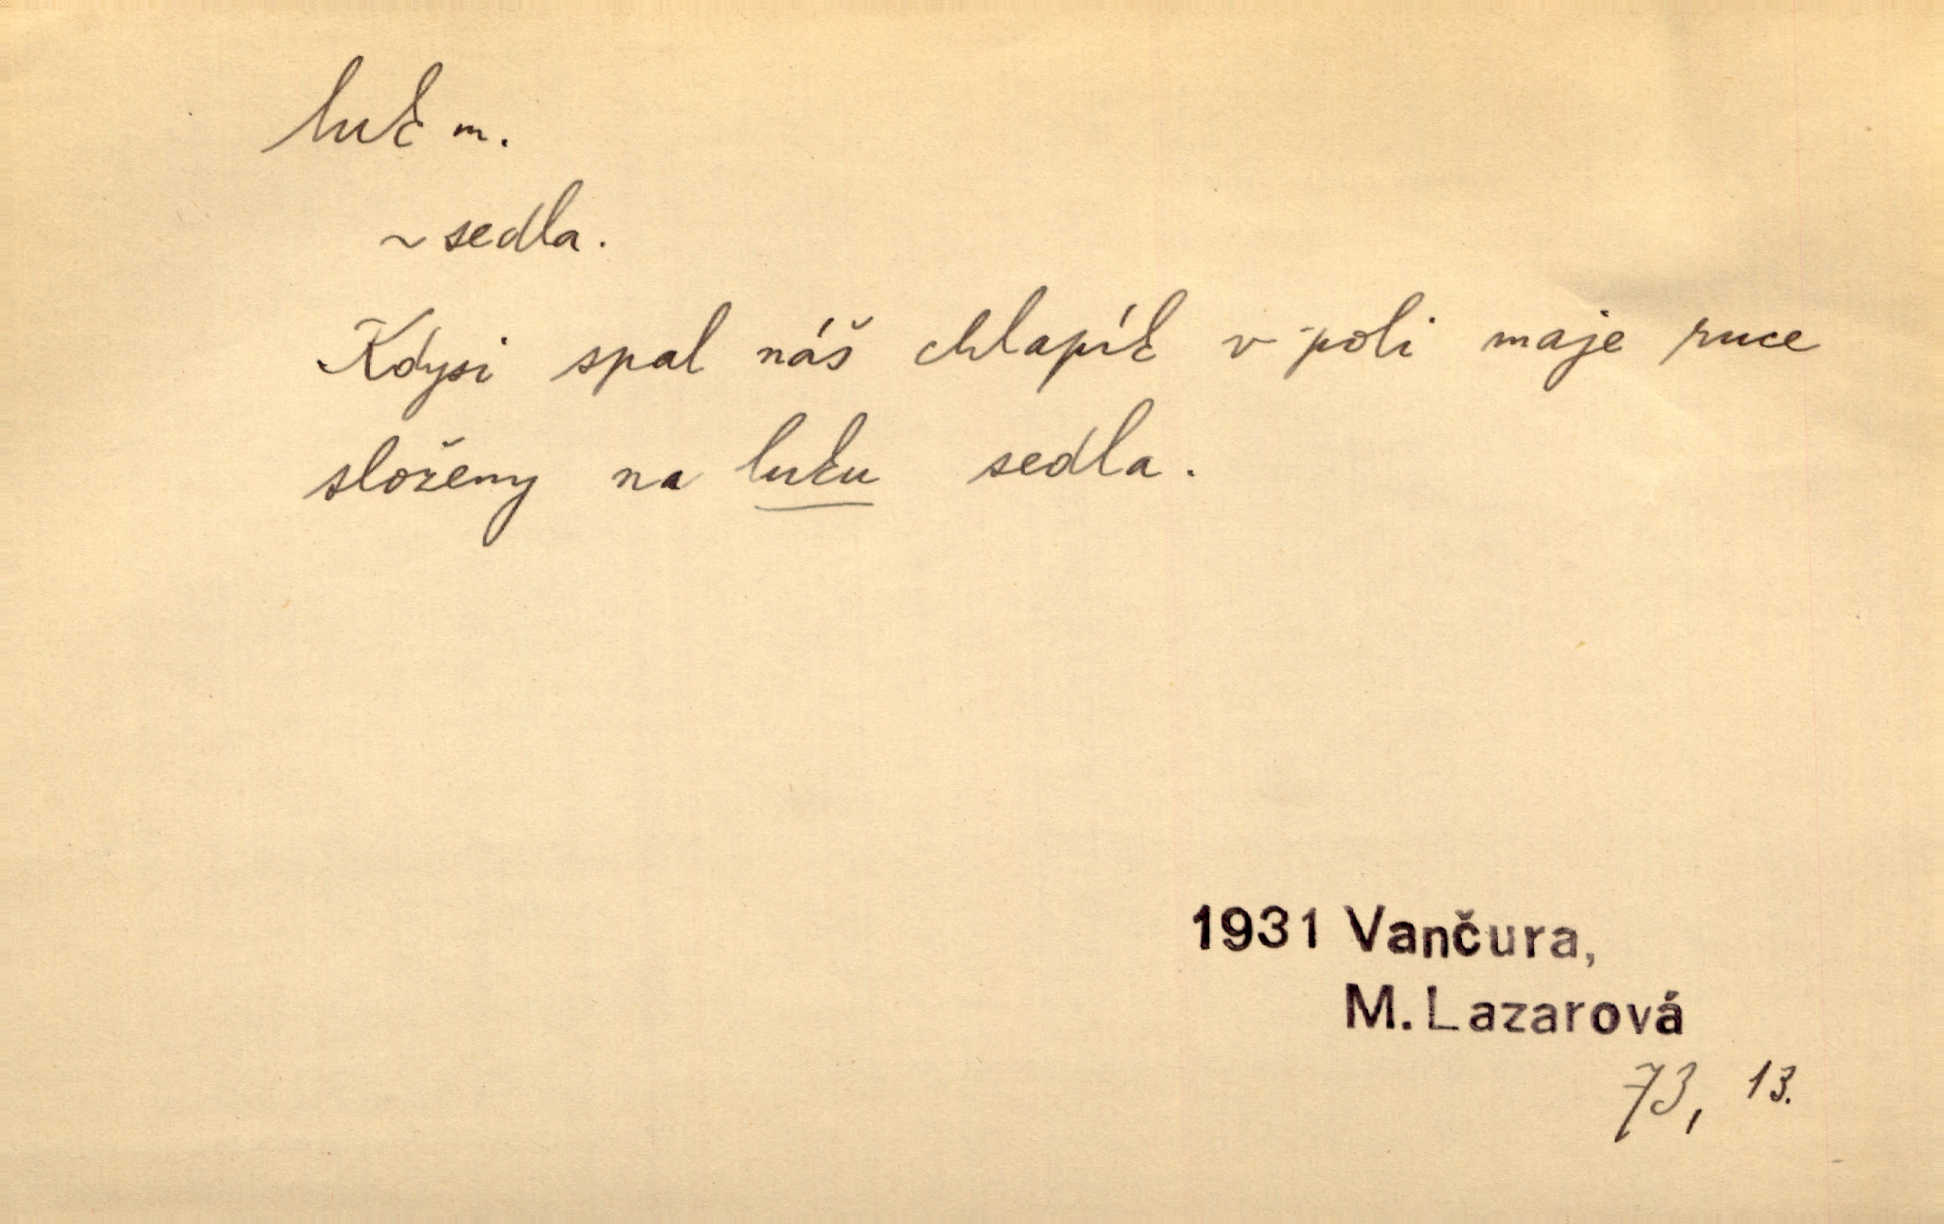 luk m.
~ sedla.
Kdysi spal náš chlapík v poli maje ruce
složeny na luku sedla.
1931 Vančura,
M. Lazarová
73, 13.